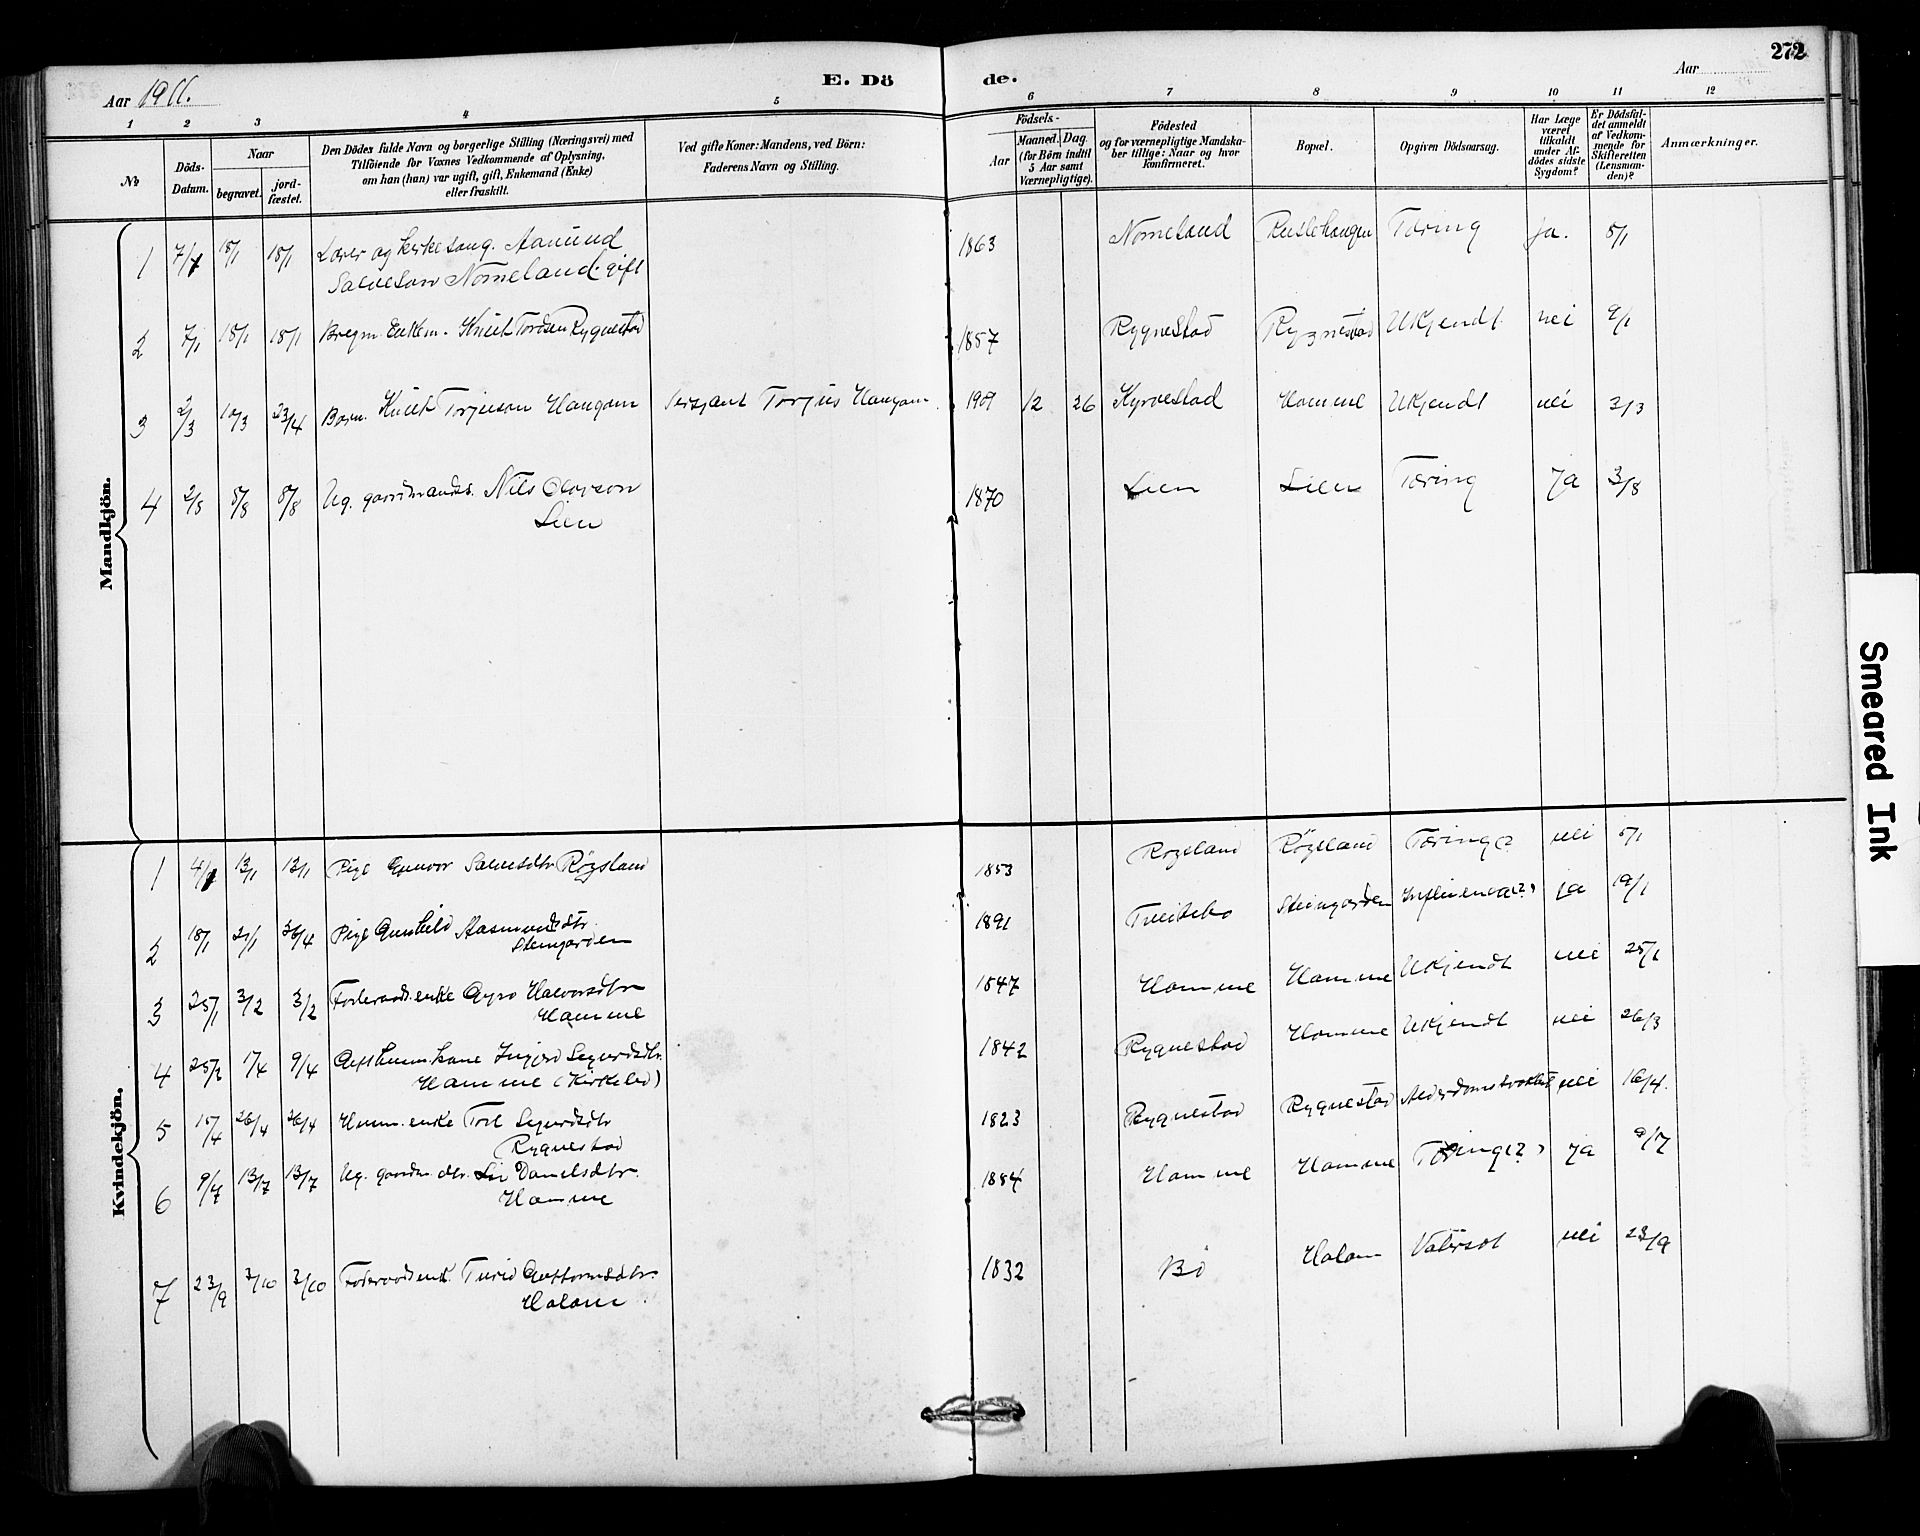 272
Aar 1911.
E. Dö
de.
Aar
1 2 3 4 5 6 7 8 9 10 11 12
№
Döds-Datum.
Naar
begravet.
jord-fæstet.
Den Dödes fulde Navn og borgerlige Stilling (Næringsvei) med
Tilföiende for Voxnes Vedkommende af Oplysning,
om han (hun) var ugift, gift, Enkemand (Enke)
eller fraskilt.
Ved gifte Koner: Mandens, ved Börn:
Faderens Navn og Stilling.
Födsels-
Aar
Maaned. Dag
(for Börn indtil
5 Aar samt
Værnepligtige).
Födested
og for værnepligtige Mandska-
ber tillige: Naar og hvor
konfirmeret.
Bopæl.
Opgiven Dödsaarsag.
Har Læge
været
tilkaldt
under Af-
dödes sidste
Sygdom?
Er Dödsfal-
det anmeldt
af Vedkom-
mende for
Skifteretten
(Lensman-
den)?
Anmærkninger.
Mandkjön.
1 7/1 18/1 18/1 Lærer og kirkesang. Aamund 1863 Nomeland Tæring ja. 8/1
Salveson Nomeland. gift
2 7/1 18/1 18/1 Enkem. Knut Tordsen Rygnestad 1857 Rygnestad Rygnestad Ukjendt nei 9/1
3 2/3 10/3 23/4 Barn. Knut Torjuson Haugom Sersjant Torjus Haugom 1909 12 26 Kyrvestad Homme Ukjendt nei 3/3
4 2/8 8/8 8/8 Ug. gaardmands. Nils Olavson 1870 Lien Lien Tæring ja 3/8
Lien
Kvindekjön.
1 4/1 13/1 13/1 Pige Gunvor Salvesdtr Røysland 1853 Røysland Røysland Tæring(?) nei 5/1
2 18/1 21/1 26/4 Pige Gunhild Aasmundsdtr 1891 Tveitebø Steingarden Influenca(?) ja 19/1
Steingarden
3 25/1 3/2 3/2 Foderaadsenke Gyro Halvorsdtr 1847 Homme Homme Ukjendt nei 25/1
Homme
4 1/4 9/4 kone Ingjerd Sigurdsdtr. 1842 Rygnestad Homme Ukjendt nei 26/3
Homme (Kirkeled)
5 15/4 26/4 26/4 Husm. enke Torl Sigurdsdtr 1823 Rygnestad Rygnestad Alderdomssvakhet nei 16/4.
Rygnestad
6 9/7 13/7 13/7 Ug. gaardm. dtr. Liv Danielsdtr. 1884 Homme Homme Tæring(?) ja 9/7
Homme
7 23/9 3/10 3/10 Foderaadsenk. Turid Guttormsdtr. 1832 Bø Holom Vatersot nei 23/9
Holom
Smeared Ink